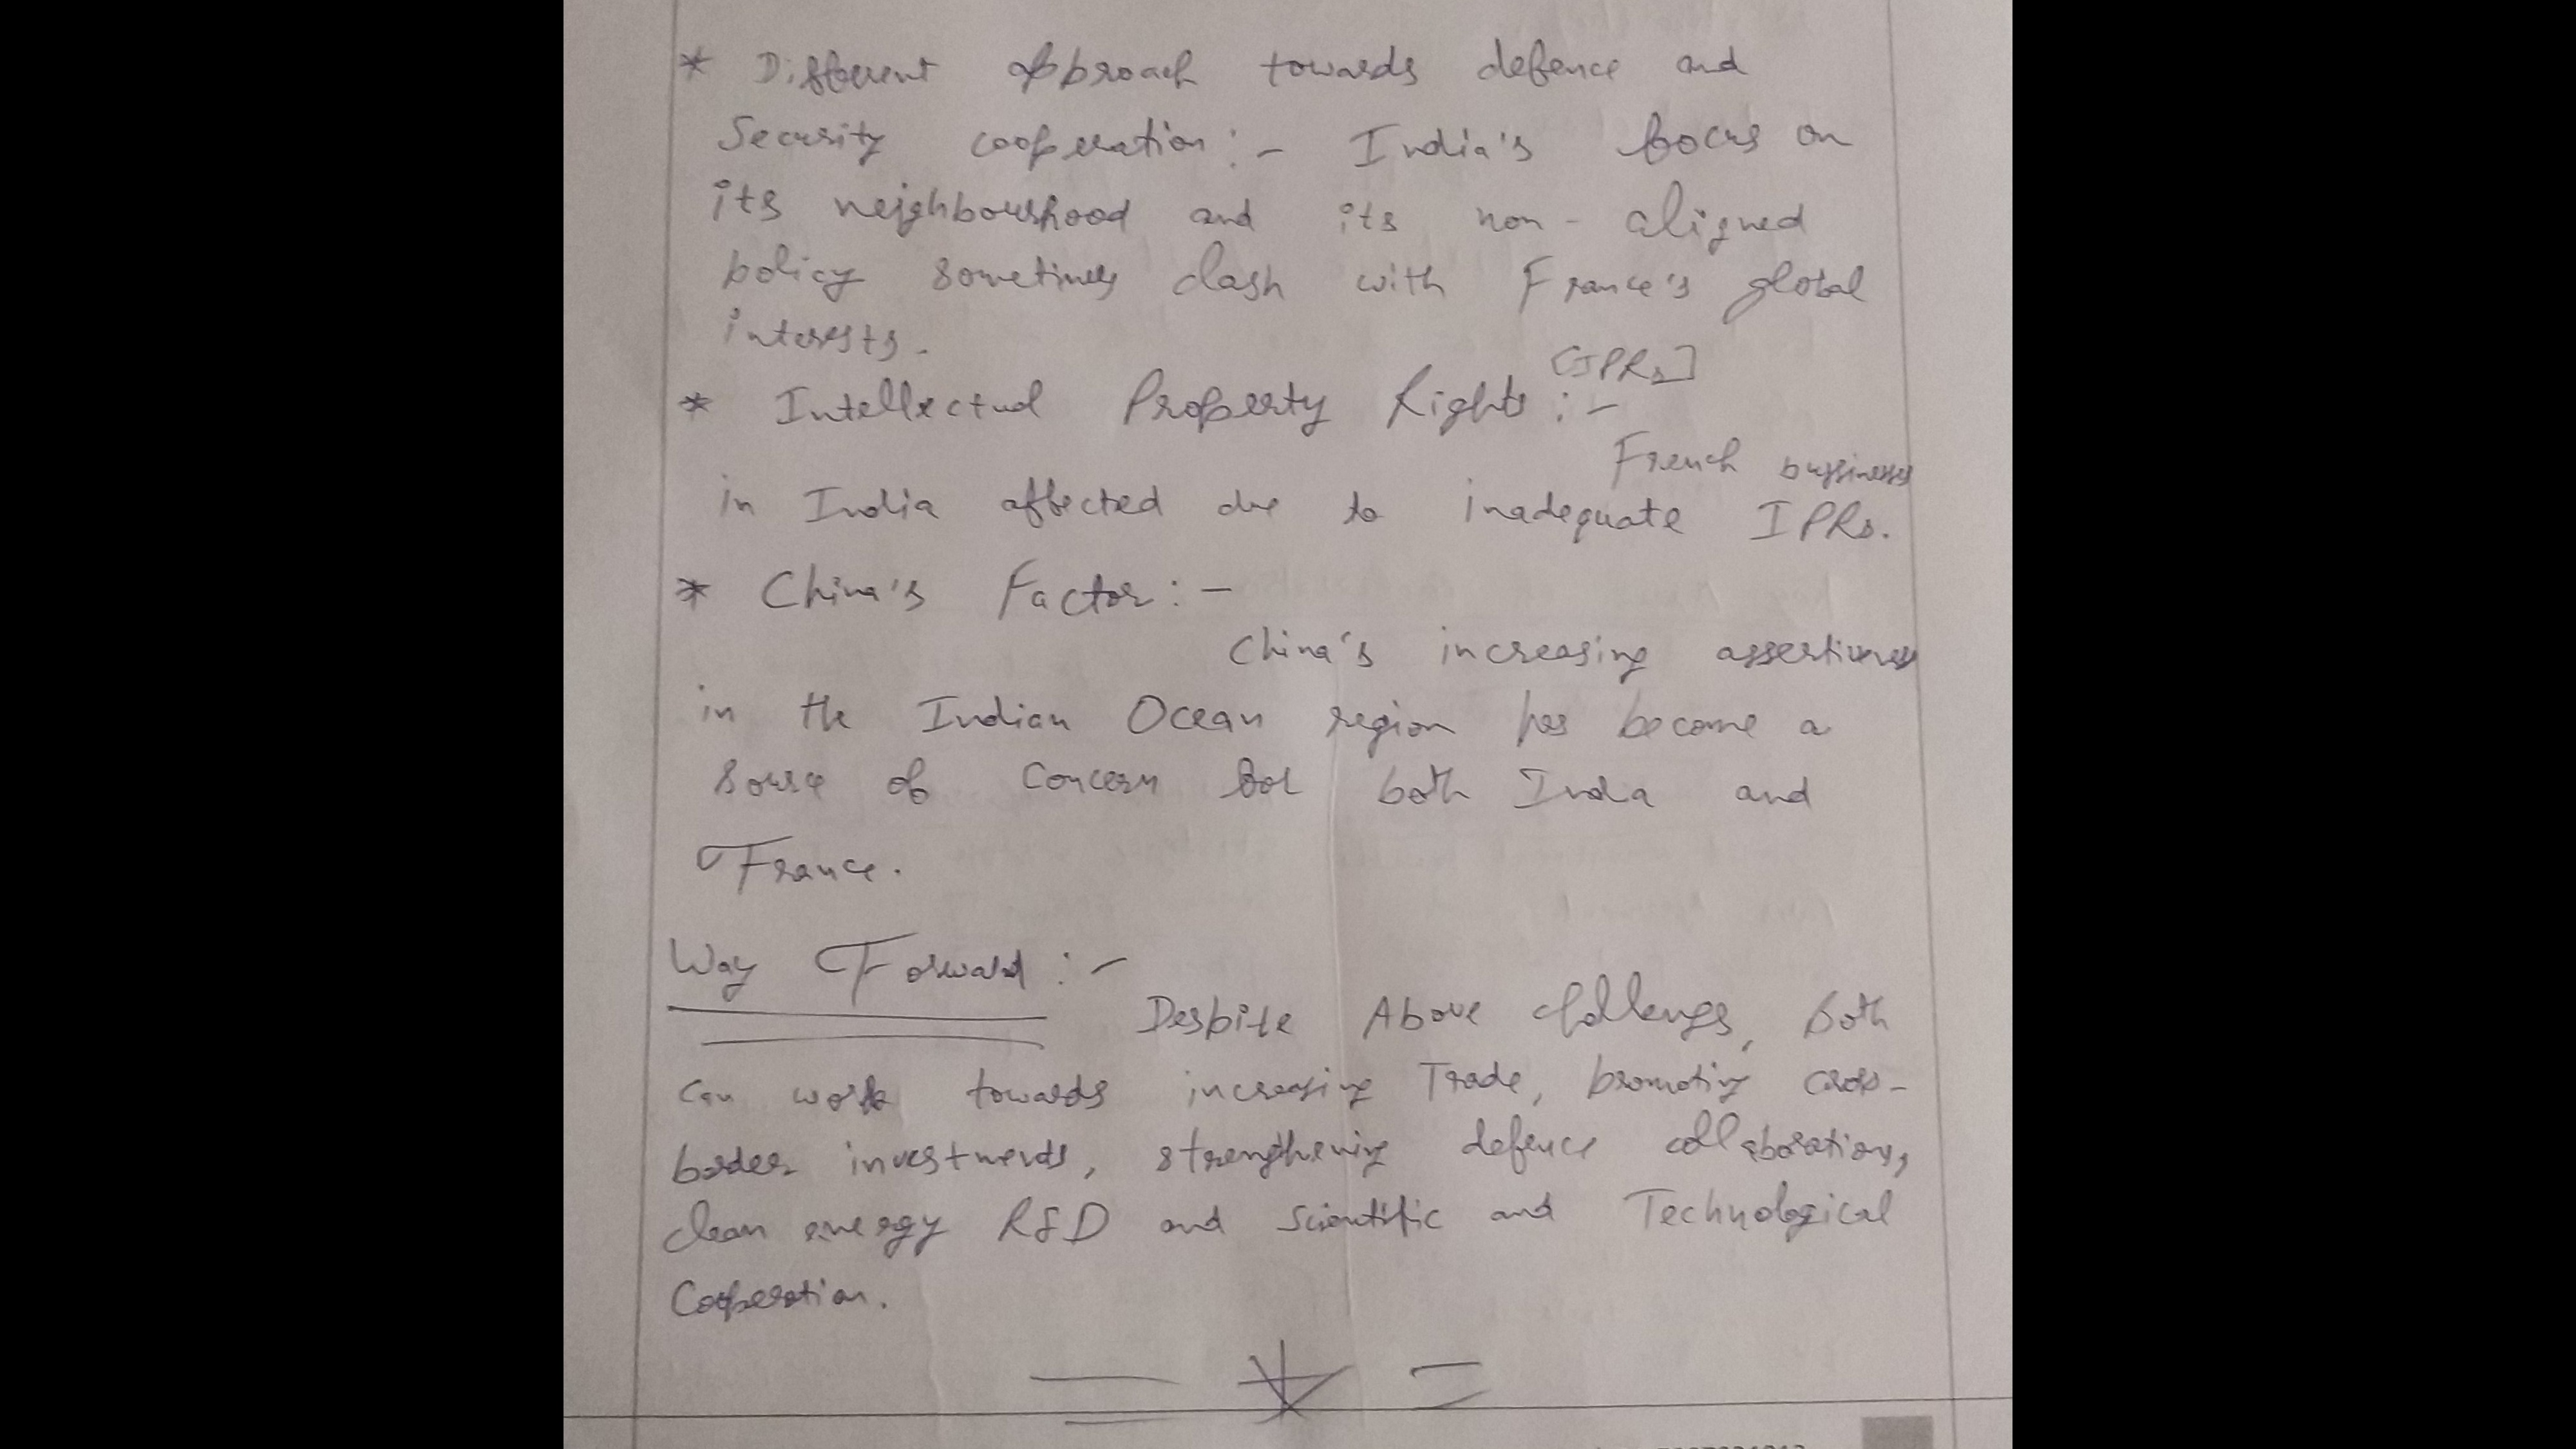 * Different approach towards defence and
Security cooperation :- India's focus on
its neighbourhood and its non-aligned
policy sometimes clash with France's global
interests.
[IPRs]
* Intellectual Property Rights :-
French bussinesses
in India affected due to inadequate IPRs.
* China's Factor :-
China's increasing assertiveness
in the Indian Ocean region has become a
sourse of concern for both India and
France.
Way Forward :-
Despite Above challenges, both
can work towards increasing Trade, promoting cross-
border investments, strengthening defence collaborations,
clean energy R&D and scientific and Technological
Cooperation.